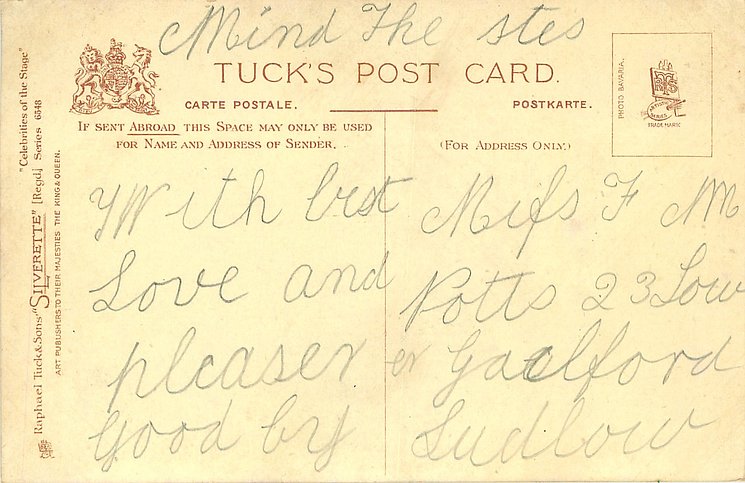 Mind The stes
TUCK'S POST CARD.
CARTE POSTALE.
POSTKARTE.
IF SENT ABROAD THIS SPACE MAY ONLY BE USED
FOR NAME AND ADDRESS OF SENDER.
(FOR ADDRESS ONLY.)
PHOTO BAVARIA.
TRADE MARK
"Celebrities of the Stage"
Raphael Tuck & Sons' "SILVERETTE" [Regd.] Series 6548
ART PUBLISHERS TO THEIR MAJESTIES THE KING & QUEEN.
With best
Love and
pleaser
Good by
Mifs F M
Potts 23 Low
er Gaelford
Ludlow